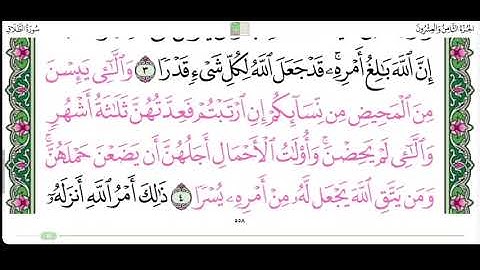 سُورَةُ الطَّلَاقِ
الجُزْءُ الثَّامِنُ وَالعِشْرُونَ
إِنَّ ٱللَّهَ بَٰلِغُ أَمْرِهِۦۚ قَدْ جَعَلَ ٱللَّهُ لِكُلِّ شَىْءٍ قَدْرًا ٣ وَٱلَّٰٓـِٔى يَئِسْنَ
مِنَ ٱلْمَحِيضِ مِن نِّسَآئِكُمْ إِنِ ٱرْتَبْتُمْ فَعِدَّتُهُنَّ ثَلَٰثَةُ أَشْهُرٍ
وَٱلَّٰٓـِٔى لَمْ يَحِضْنَۚ وَأُو۟لَٰتُ ٱلْأَحْمَالِ أَجَلُهُنَّ أَن يَضَعْنَ حَمْلَهُنَّۚ
وَمَن يَتَّقِ ٱللَّهَ يَجْعَل لَّهُۥ مِنْ أَمْرِهِۦ يُسْرًا ٤ ذَٰلِكَ أَمْرُ ٱللَّهِ أَنزَلَهُۥٓ
٥٥٨